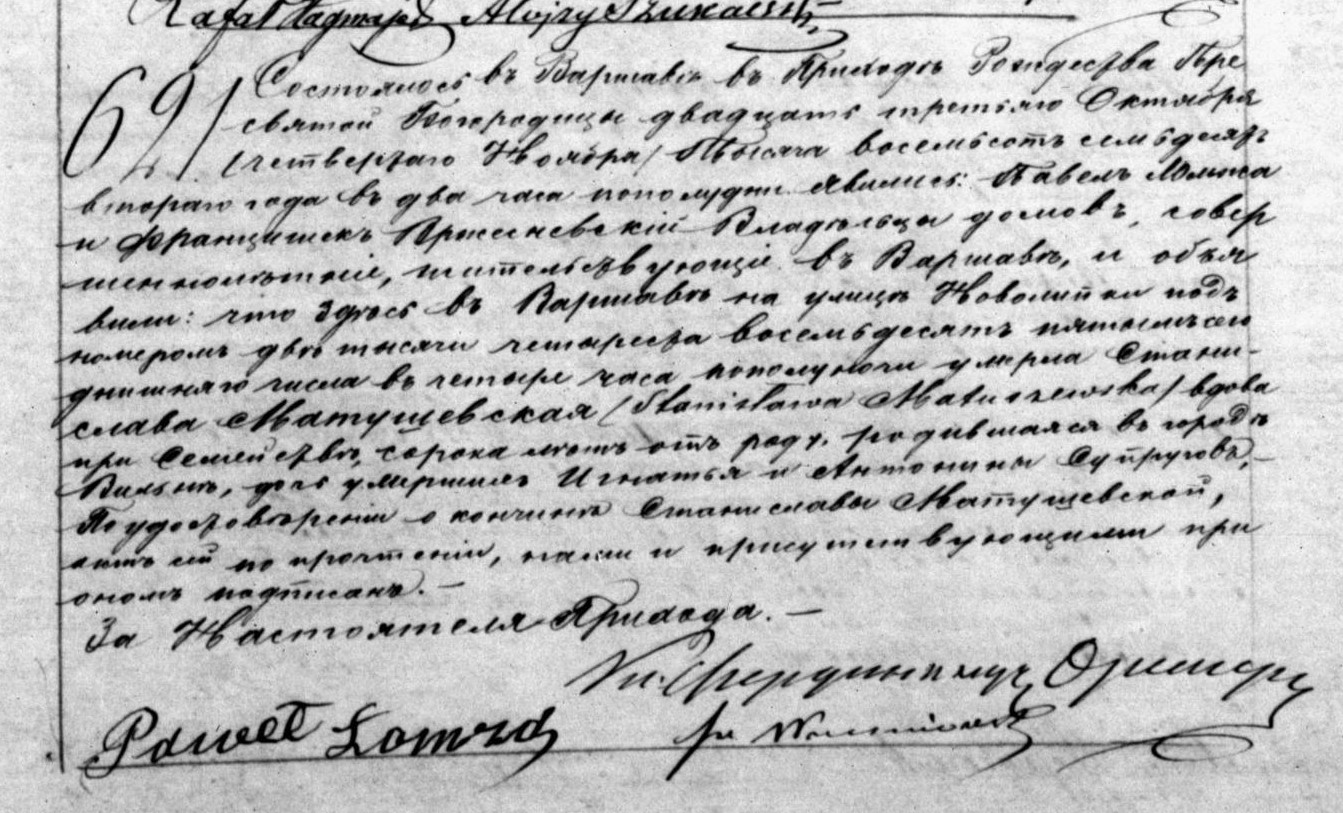 Rafał Alojzy
691 Состоялось въ Варшавѣ въ Приходѣ Рождества Пре
святой Богородицы двадцать третьяго Октября
/четвертаго Ноября/ Тысяча восемьсотъ семьдесятъ
втораго года въ два часа пополудни. Явились: Павелъ Ломжа
и Францишекъ Владѣльцы домовъ, совер
шеннолѣтніе, жительствующіе въ Варшавѣ, и объя
вили: что здѣсь въ Варшавѣ на улицѣ Новолипки подъ
номеромъ двѣ тысячи четыреста восемьдесятъ пятымъ сего
днишняго числа въ четыре часа пополуночи умерла Стани-
слава Матушевская /Stanisława Matuszewska/ вдова
при Семействѣ, сорока лѣтъ отъ роду, родившаяся въ городѣ
Вильнѣ, дочь умершихъ Игнатья и Антонины Супруговъ,-
По удостовѣреніи о кончинѣ Станиславы Матушевской,
актъ сей по прочтеніи, нами и присутствующими при
ономъ подписанъ.-
За Настоятеля Прихода.-
Paweł Łomzа